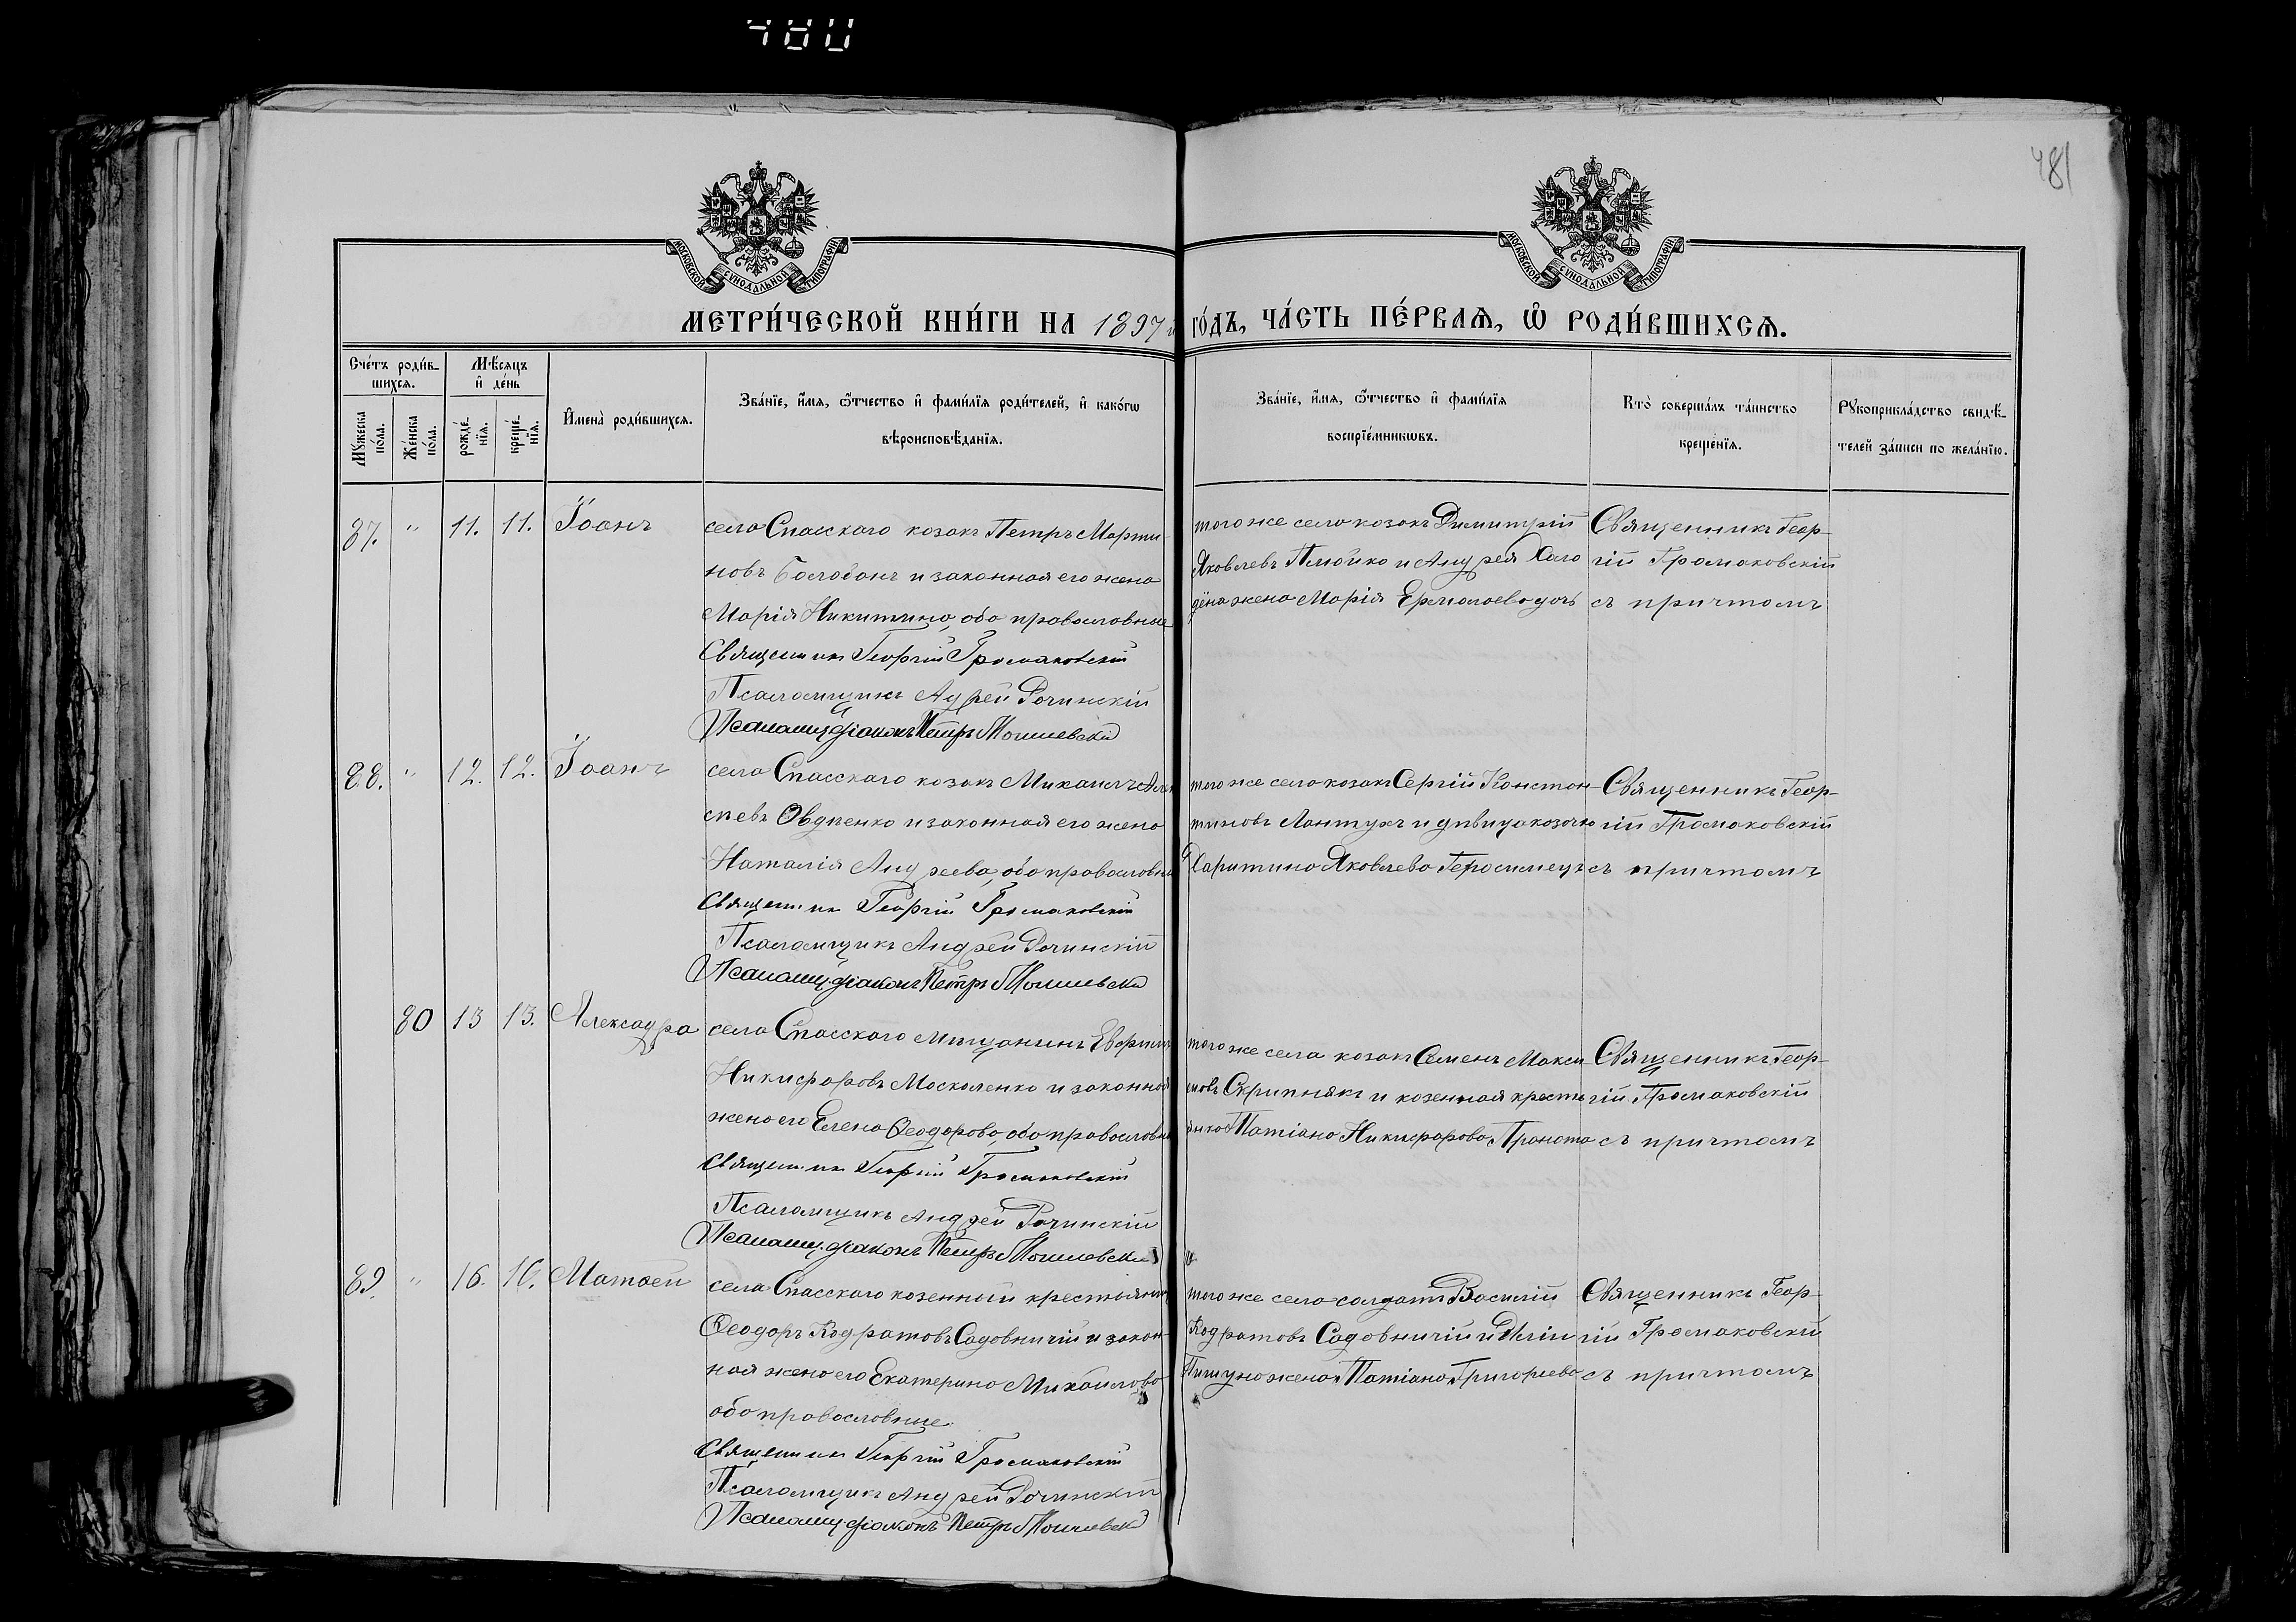 480
481
МОСКОВСКОЙ СУНОДАЛЬНОЙ ТИПОГРАФІИ
МОСКОВСКОЙ СУНОДАЛЬНОЙ ТИПОГРАФІИ
МЕТРИ́ЧЕСКОЙ КНИ́ГИ НА 1897 й ГО́ДЪ, ЧА́СТЬ ПЕ́РВАѦ, Ѡ҆ РОДИ́ВШИХСѦ.
Сче́тъ роди́в-
шихсѧ.
Мѣ́сѧцъ
и҆ де́нь
Мꙋ́жеска
по́ла.
Же́нска
по́ла.
рожде́-
нїѧ.
креще́-
нїѧ.
И҆мена̀ роди́вшихсѧ.
Зва́нїе, и҆́мѧ, ѻ҆́тчество и҆ фами́лїѧ роди́телей, и҆ како́гѡ
вѣроисповѣ́данїѧ.
Зва́нїе, и҆́мѧ, ѻ҆́тчество и҆ фами́лїѧ
воспрїе́мникѡвъ.
Кто̀ соверша́лъ та́инство
креще́нїѧ.
Рꙋкоприкла́дство свидѣ́-
телей за́писи по жела́нїю.
87. " 11. 11. Іоанъ
села Спасскаго козакъ Петръ Марти-
новъ Балабанъ и законная его жена
Марія Никитина, оба православные
Священникъ Георгій Громаковскій
Псаломщикъ Андрей Рочинскій
Псаломщ. діаконъ Петръ
того же села козакъ Димитрій
Яковлевъ Плюйко и Андрея
жена Марія Ермолаева дочь
Священникъ Геор-
гій Громаковскій
съ причтомъ
88. " 12. 12. Іоанъ
села Спасскаго козакъ Михаилъ Алек
сѣевъ Овдіенко и законная его жена
Наталія Андреева, оба православные
Священникъ Георгій Громаковскій
Псаломщикъ Андрей Рочинскій
Псаломщ. діаконъ Петръ
того же села козакъ Сергій Констан-
тиновъ Лантухъ и дѣвица козачка
Харитина Яковлева Герасимецъ
Священникъ Геор-
гій Громаковскій
съ причтомъ
80 13 13. Александра
села Спасскаго мѣщанинъ Евфимъ
Никифоровъ Москаленко и законная
жена его Елена Ѳеодорова, оба православные
Священникъ Георгій Громаковскій
Псаломщикъ Андрей Рочинскій
Псаломщ. діаконъ Петръ
того же села козакъ Семенъ Макси
мовъ Скрипнякъ и козенная кресть
янка Татіана Никифорова
Священникъ Геор-
гій Громаковскій
съ причтомъ
89. " 16. 16. Матѳей
села Спасскаго козенный крестьянинъ
Ѳеодоръ Кодратовъ Садовничій и закон-
ная жена его Екатерина Михайлова
оба православные
Священникъ Георгій Громаковскій
Псаломщикъ Андрей Рочинскій
Псаломщ. діаконъ Петръ
того же села солдатъ Василій
Кодратовъ Садовничій и
жена Татіана Григорьева
Священникъ Геор-
гій Громаковскій
съ причтомъ